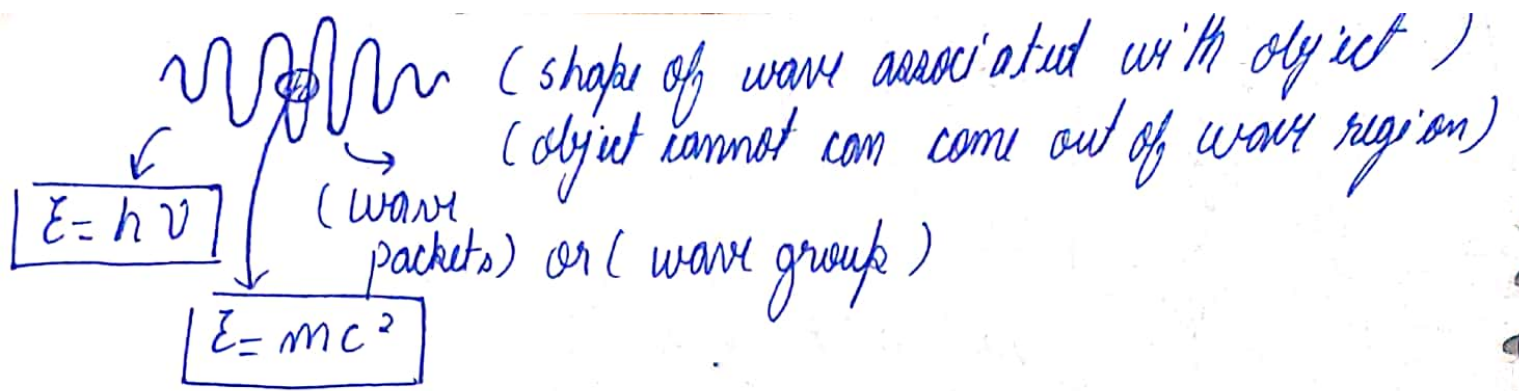 (shape of wave associated with object)
(object cannot can come out of wave region)
E = hν
(wave
packets) or (wave group)
E = mc²